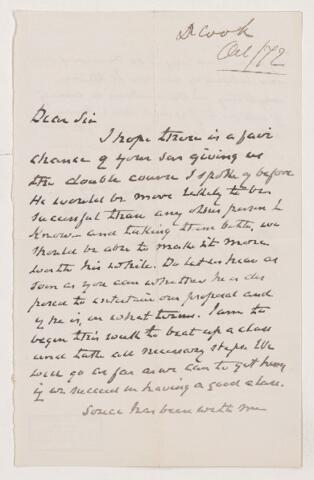 D Cook
Oct /72
Dear Sir
I hope there is a fair
chance of your son giving us
the double course I spoke of before
He would be more likely to be
successful than any other person I
know – and taking them both, we
should be able to make it more
worth his while. Do let us hear as
soon as you can whether he is dis
posed to entertain our proposal and
if he is, on what terms. I am to
begin this south to beat up a class
and take all necessary steps. We
will go as far as we can to get
if we succeed in having a good class.
has been with me